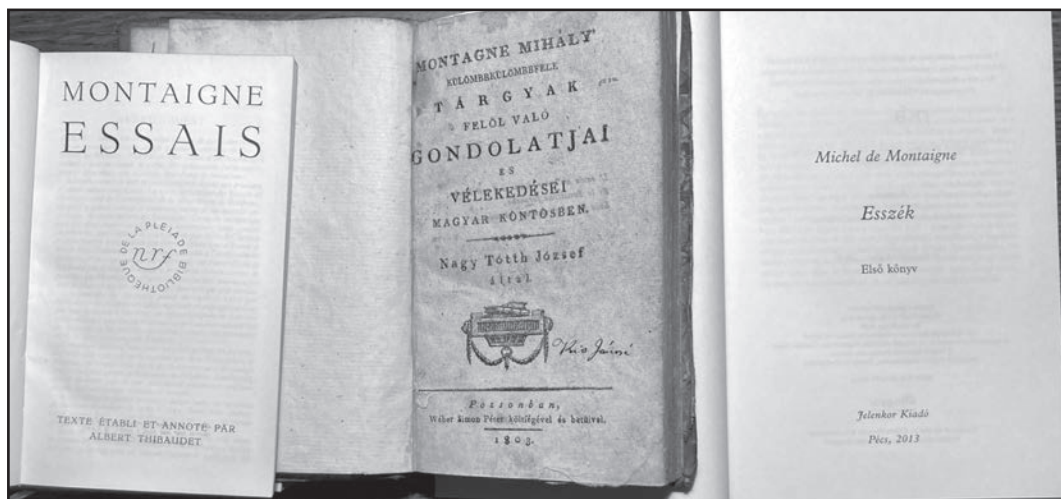 MONTAIGNE
ESSAIS
BIBLIOTHÈQUE DE LA PLÉIADE
nrf
TEXTE ÉTABLI ET ANNOTÉ PAR
ALBERT THIBAUDET
MONTAGNE MIHÁLY
KÜLÖMBKÜLÖMBFÉLE
TÁRGYAK
FELŐL VALÓ
GONDOLATJAI
ES
VÉLEKEDÉSEI
MAGYAR KÖNTÖSBEN.
Nagy Tótth József
által.
Kis János
Posonban,
Wéber Simon Péter költségével és betüivel.
1803.
Michel de Montaigne
Esszék
Első könyv
Jelenkor Kiadó
Pécs, 2013